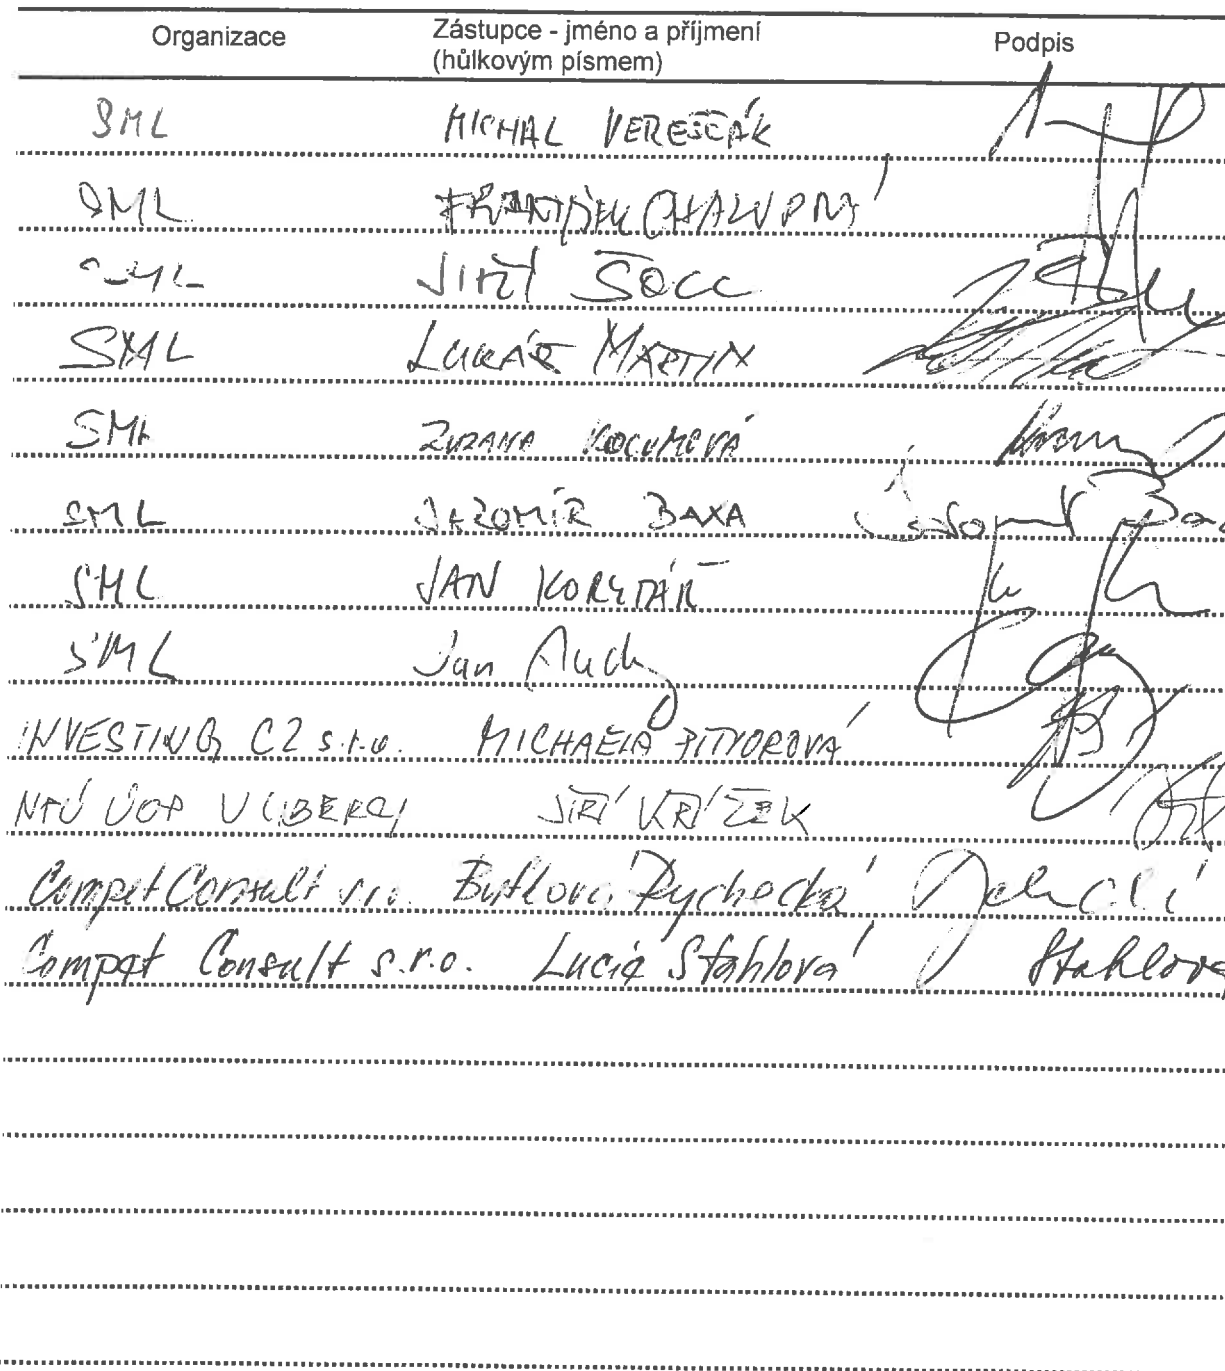 Organizace Zástupce - jméno a příjmení Podpis
(hůlkovým písmem)
SML MICHAL VEREŠČÁK
SML FRANTIŠEK CHALUPNÝ
SML JIŘÍ ŠOLC
SML LUKÁŠ MARTIN
SML ZUZANA KOCUMOVÁ
SML JAROMÍR BAXA Jaromír Baxa
SML JAN KORYTÁŘ
SML Jan Audy
INVESTING CZ s.r.o. MICHAELA
NPÚ ÚOP V LIBERCI JIŘÍ KŘÍŽEK
Compet Consult s.r.o. Rychecká
Compet Consult s.r.o. Lucie Stahlová Stahlová